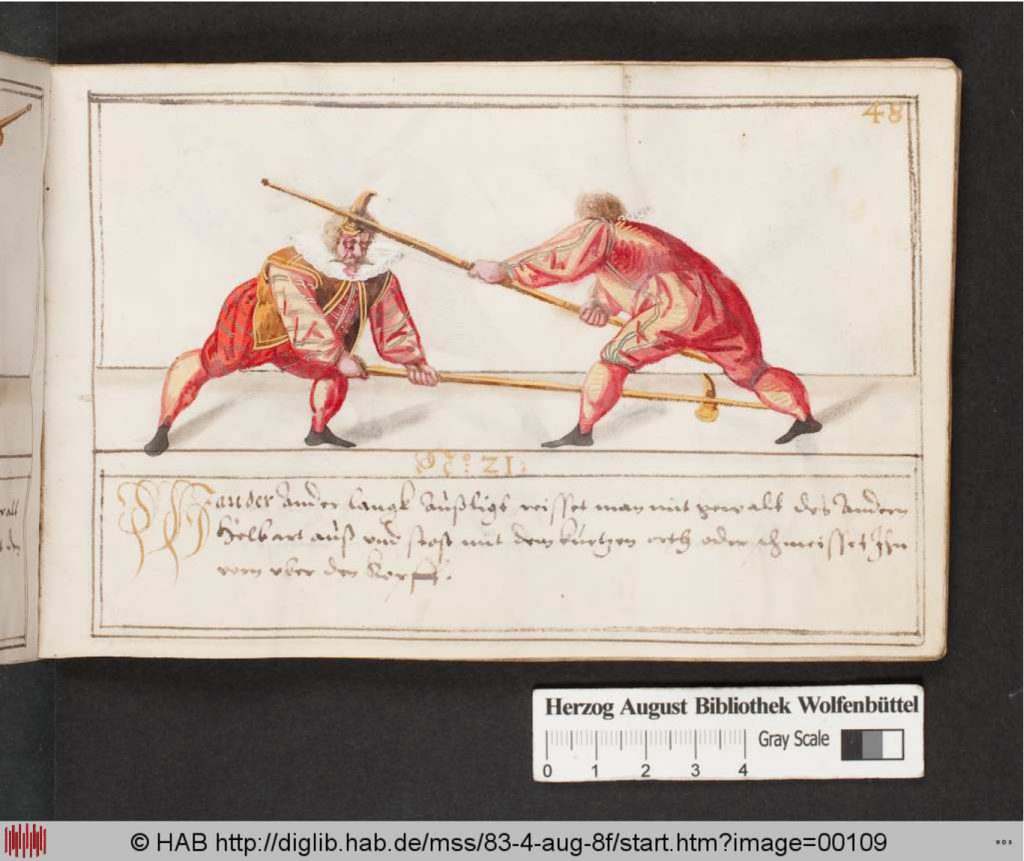 48
No: 21:
Wan der Ander langk außligt, reisset man mit gewalt des Andern
Helbart auß vnd stost mit dem kurtzen orth oder schmeisset Ihn
vorn vber den Kopff.
Herzog August Bibliothek Wolfenbüttel
Gray Scale
0 1 2 3 4
© HAB http://diglib.hab.de/mss/83-4-aug-8f/start.htm?image=00109